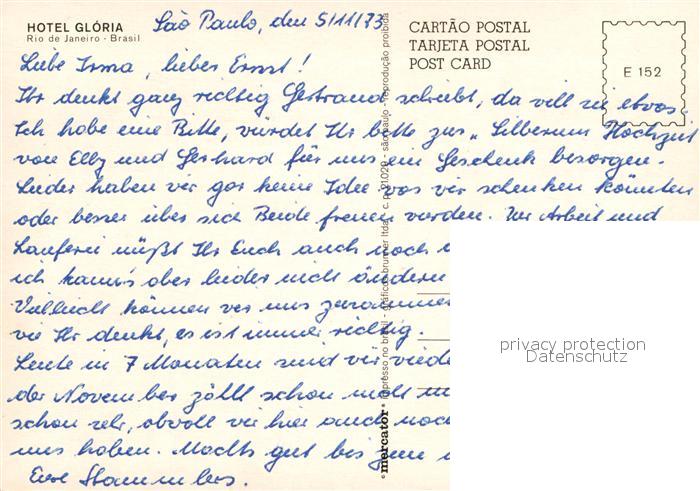 HOTEL GLÓRIA
Rio de Janeiro - Brasil
São Paulo, den 5/11/73
CARTÃO POSTAL
TARJETA POSTAL
POST CARD
E 152
Liebe Irma, lieber Ernst!
Ihr denkt ganz richtig Gertraud schreibt, da will sie etwas.
Ich habe eine Bitte, würdet Ihr bitte zur „Silbernen Hochzeit
von Elly und Gerhard für uns ein Geschenk besorgen.
Leider haben wir gar keine Idee was wir schenken könnten
oder besser über sich Beide freuen würden. Zur Arbeit und
Lauferei müßt Ihr Euch auch noch
ich kann's aber leider nicht ändern
Vielleicht können wir uns zusammen
wie Ihr denkt, es ist immer richtig.
Heute in 7 Monaten sind wir wieder
der November zählt schon nicht
schon sehr, obwohl wir hier auch noch
uns haben. Machts gut bis zum
Eure Stammlers.
mercator
impresso no brasil - gráficos brunner ltda. - c. p. 21029 - são paulo - reprodução proibida
privacy protection
Datenschutz